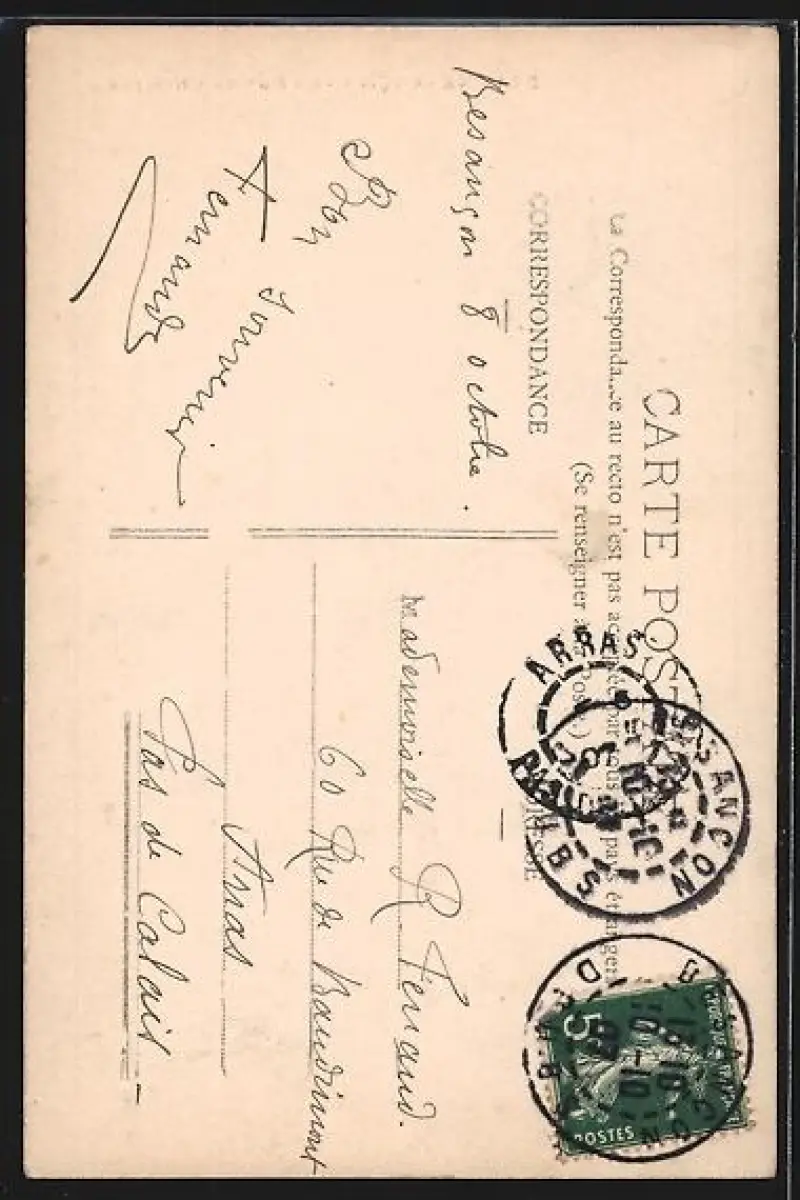 CARTE POSTALE
La Correspondance au recto n'est pas acceptée par tous les pays étrangers
(Se renseigner à la Poste.)
CORRESPONDANCE
Besançon 8 octobre.
Bon souvenir
Fernande
Mademoiselle R Fenaud.
60 Rue de Baudimont
Arras
Pas de Calais -
ARRAS
PAS
BESANÇON
DOUBS
BESANÇON
5
POSTES